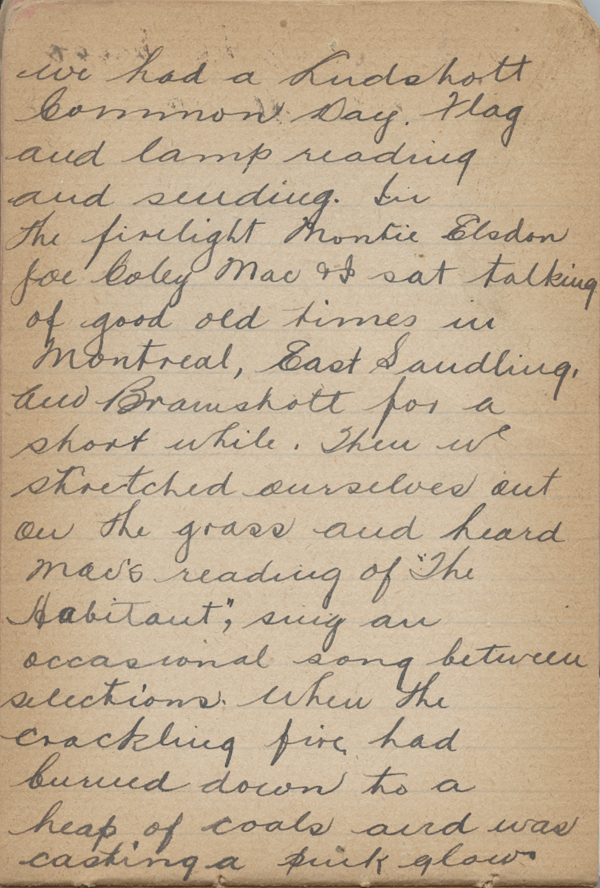 we had a Ludshott
Common Day. Flag
and lamp reading
and sending. In
the firelight Montie Elsdon
Joe Coley Mac & I sat talking
of good old times in
Montreal, East Sandling,
and Bramshott for a
short while. Then we
stretched ourselves out
on the grass and heard
Mac's reading of "The
Habitant", sing an
occasional song between
selections. When the
crackling fire had
burned down to a
heap of coals and was
casting a pink glow